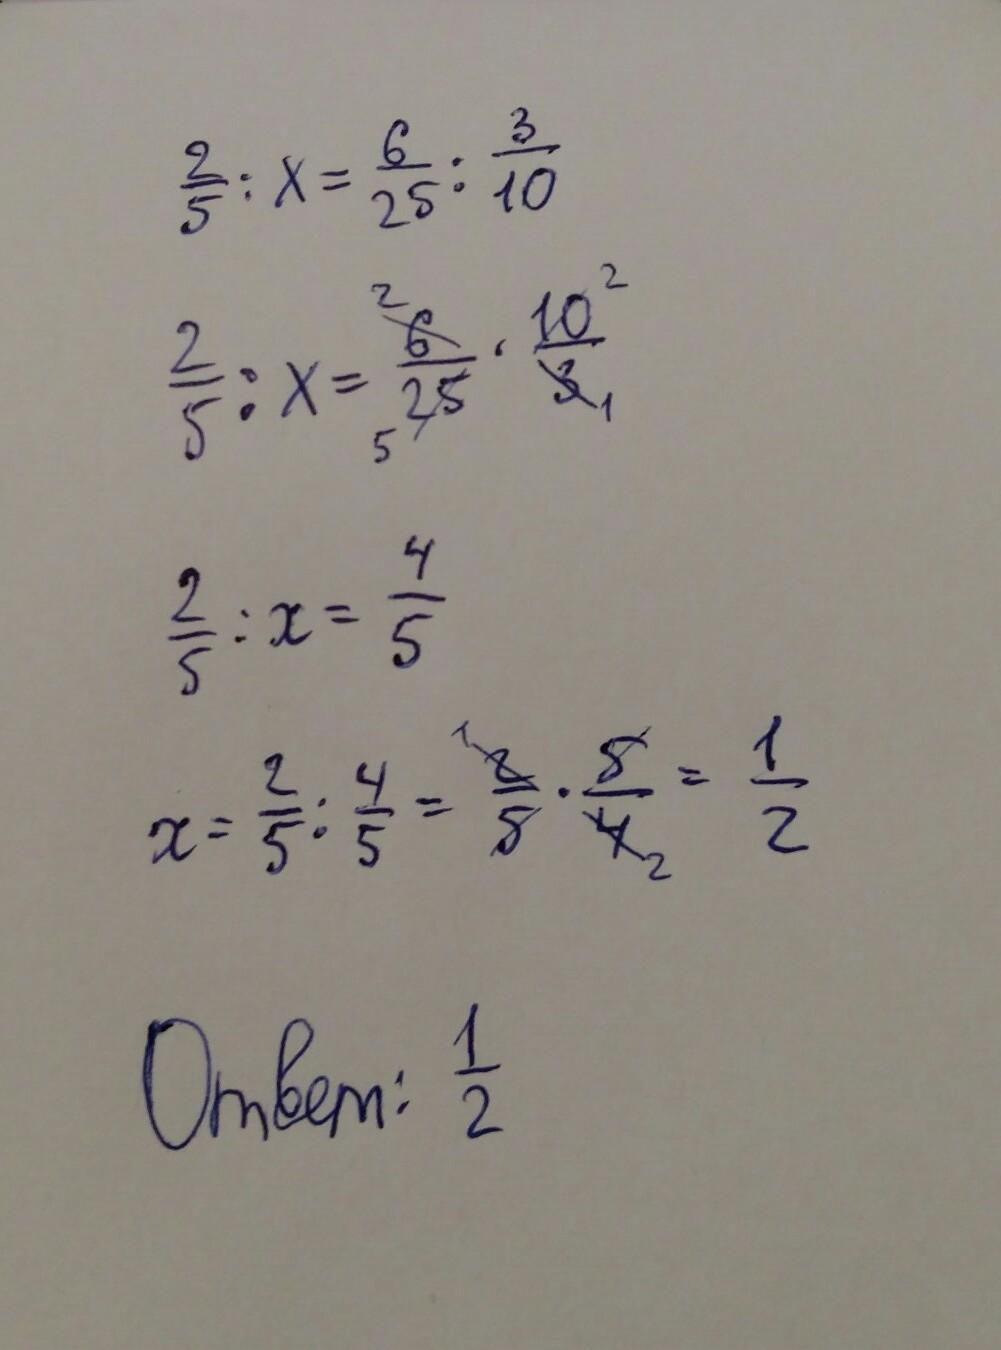 2/5 : x = 6/25 : 3/10
2/5 : x = 6/25 · 10/3 2 5 2 1
2/5 : x = 4/5
x = 2/5 : 4/5 = 2/5 · 5/4 = 1/2 1 2
Ответ: 1/2